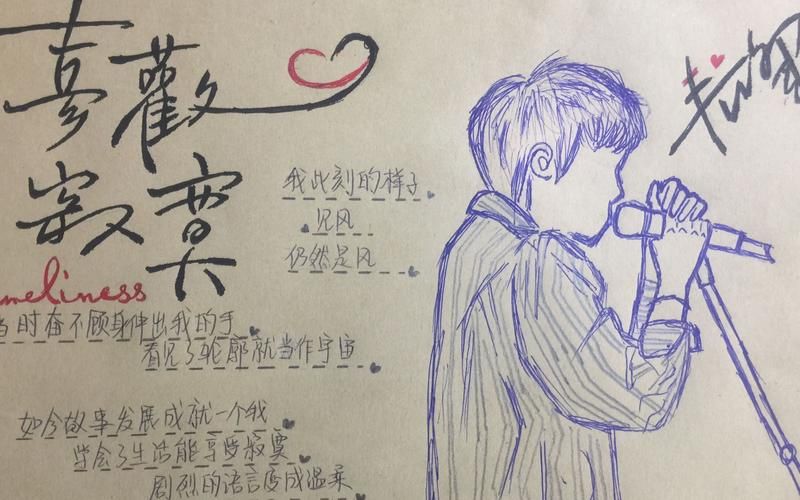 喜歡
寂寞
meliness
我此刻的样子
见风
仍然是风
当时奋不顾身伸出我的手
看见了轮廓就当作宇宙
如今故事发展成就一个我
学会了生活能享受寂寞
剧烈的语言变成温柔